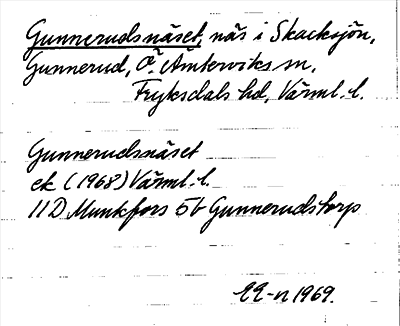 Gunnerudsnäset, näs i Skacksjön,
Gunnerud, Ö. Ämterviks sn,
Fryksdals hd, Värml. l.
Gunnerudsnäset
ek (1968) Värml. l.
11D Munkfors 5b Gunnerudstorp
1969.